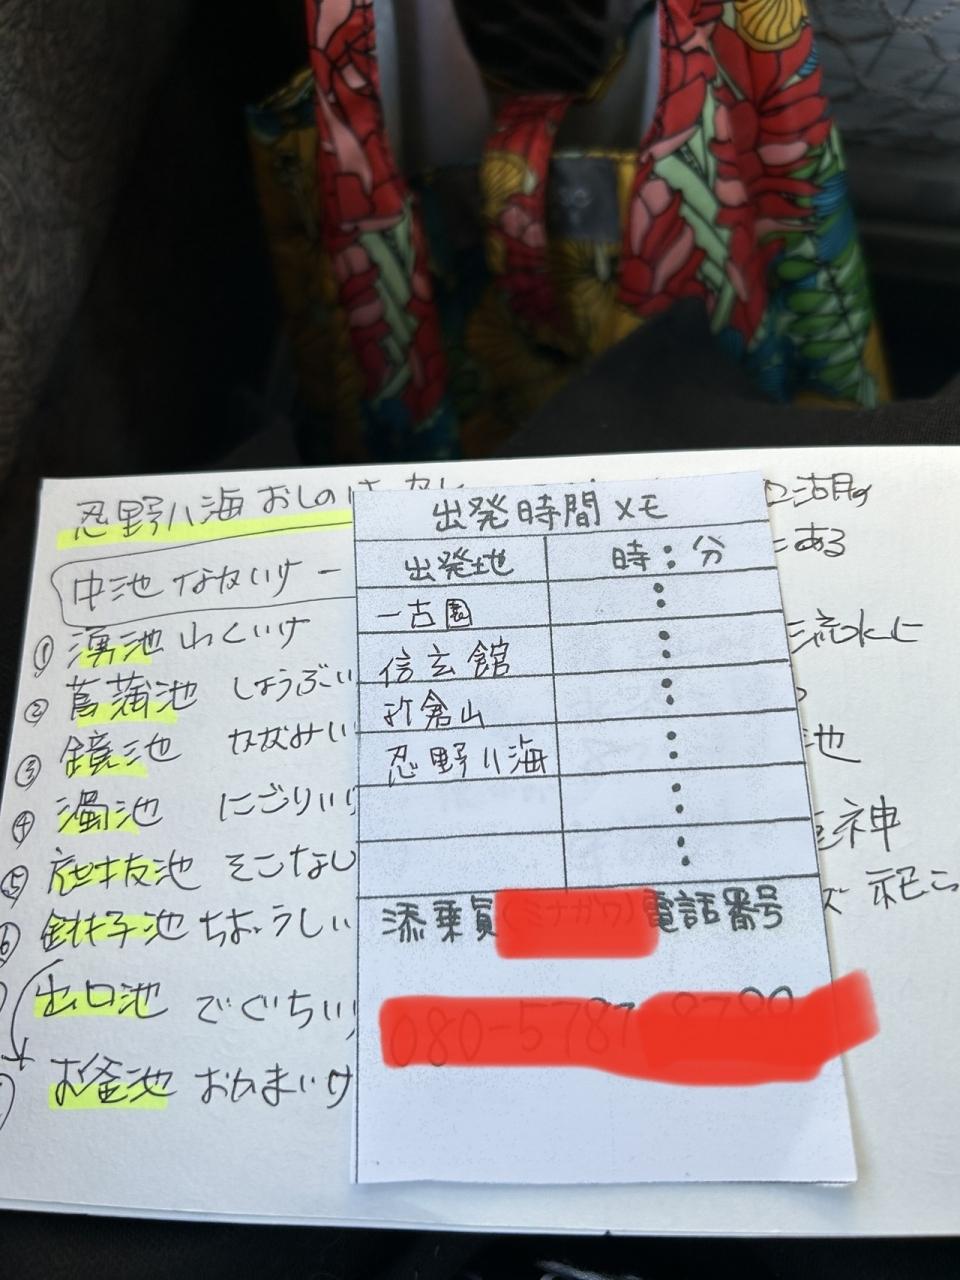 忍野八海 おしの
中池 なかいけ ー
① 湧池 わくいけ
② 菖蒲池 しょうぶい
③ 鏡池 かがみい
④ 濁池 にごりい
⑤ 底抜池 そこなし
⑥ 銚子池 ちょうしい
出口池 でぐちい
お釜池 おかまいけ
出発時間メモ
出発地 時:分
一古園 :
信玄館 :
砂倉山 :
忍野八海 :
:
:
添乗員
電話番号
湖の
ある
流水に
池
神
祀ら